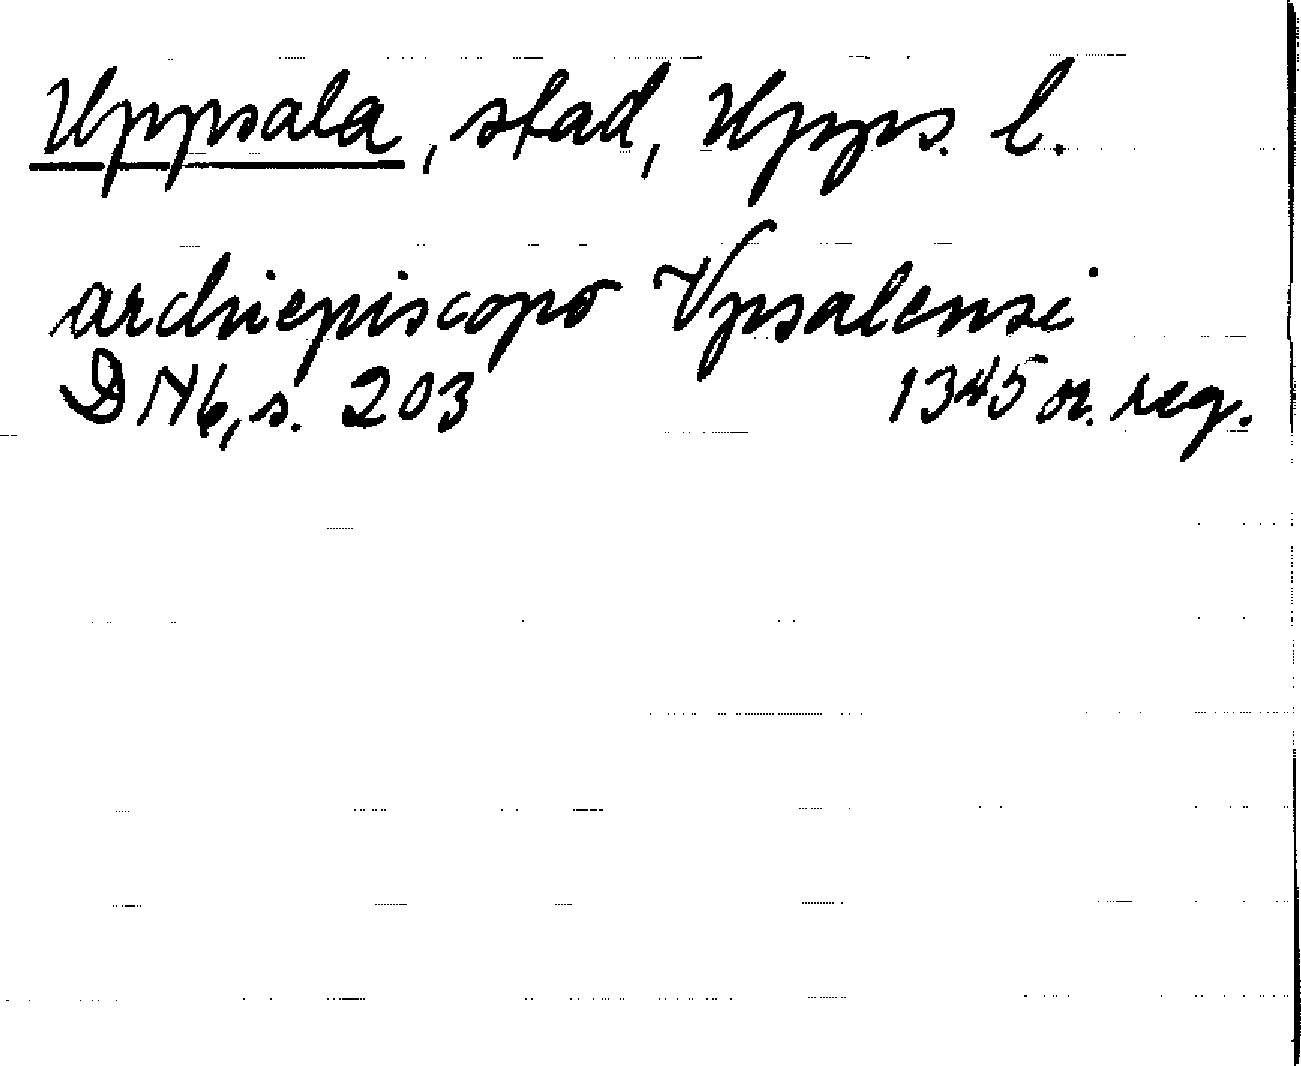 Uppsala, stad, Upps. l.
archiepiscopo Vpsalensi
DN6, s. 203 1345 or. reg.